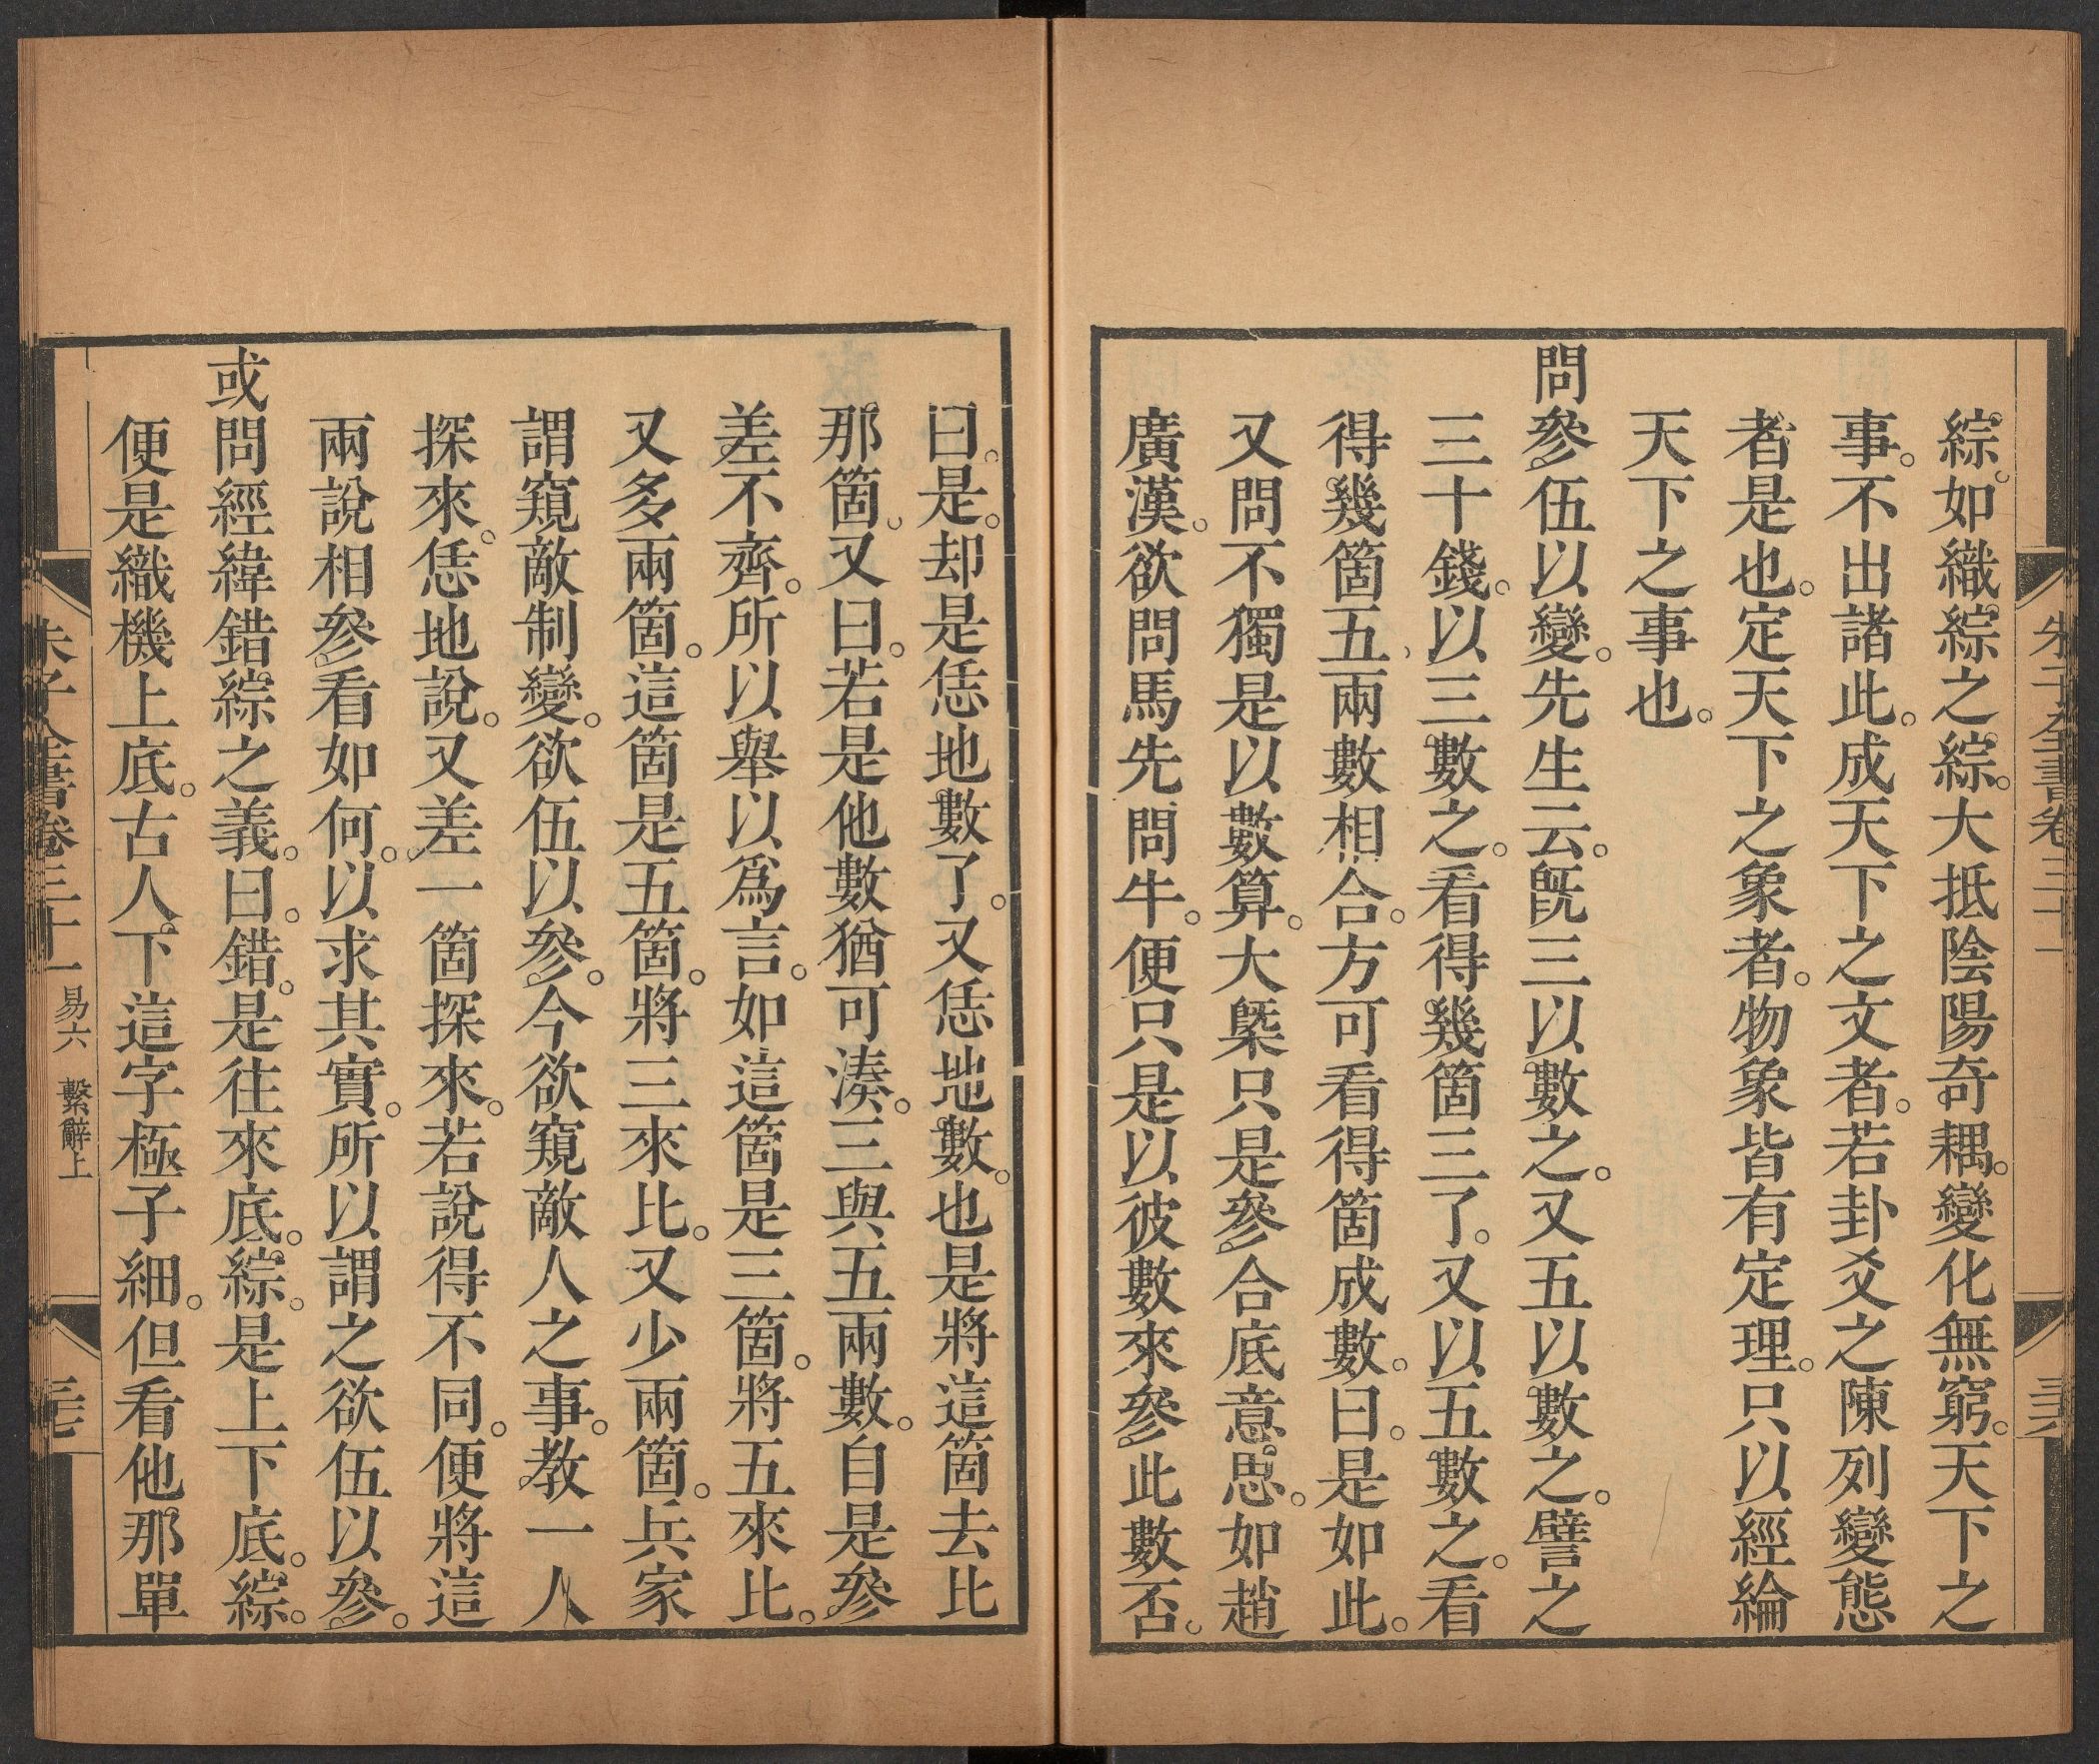 綜。如織綜之綜。大抵陰陽奇耦。變化無窮。天下之
事。不出諸此。成天下之文者。若卦爻之陳列變態
者是也。定天下之象者。物象皆有定理。只以經綸
天下之事也。
問參伍以變。先生云。旣三以數之。又五以數之。譬之
三十錢。以三數之。看得幾箇三了。又以五數之。看
得幾箇五、兩數相合。方可看得箇成數。曰。是如此。
又問不獨是以數算。大槩只是參合底意思。如趙
廣漢。欲問馬先問牛。便只是以彼數來參此數否。
曰。是。却是恁地數了。又恁地數。也是將這箇去比
那箇。又曰。若是他數猶可湊。三與五兩數。自是參
差不齊。所以舉以爲言。如這箇是三箇。將五來比。
又多兩箇。這箇是五箇。將三來比。又少兩箇。兵家
謂窺敵制變。欲伍以參。今欲窺敵人之事。教一人
探來。恁地說。又差一箇探來。若說得不同。便將這
兩說相參看如何。以求其實。所以謂之欲伍以參。
或問經緯錯綜之義。曰。錯。是往來底。綜。是上下底。綜。
便是織機上底。古人下這字極子細。但看他那單
朱子全書卷三十一
易六 繫辭上